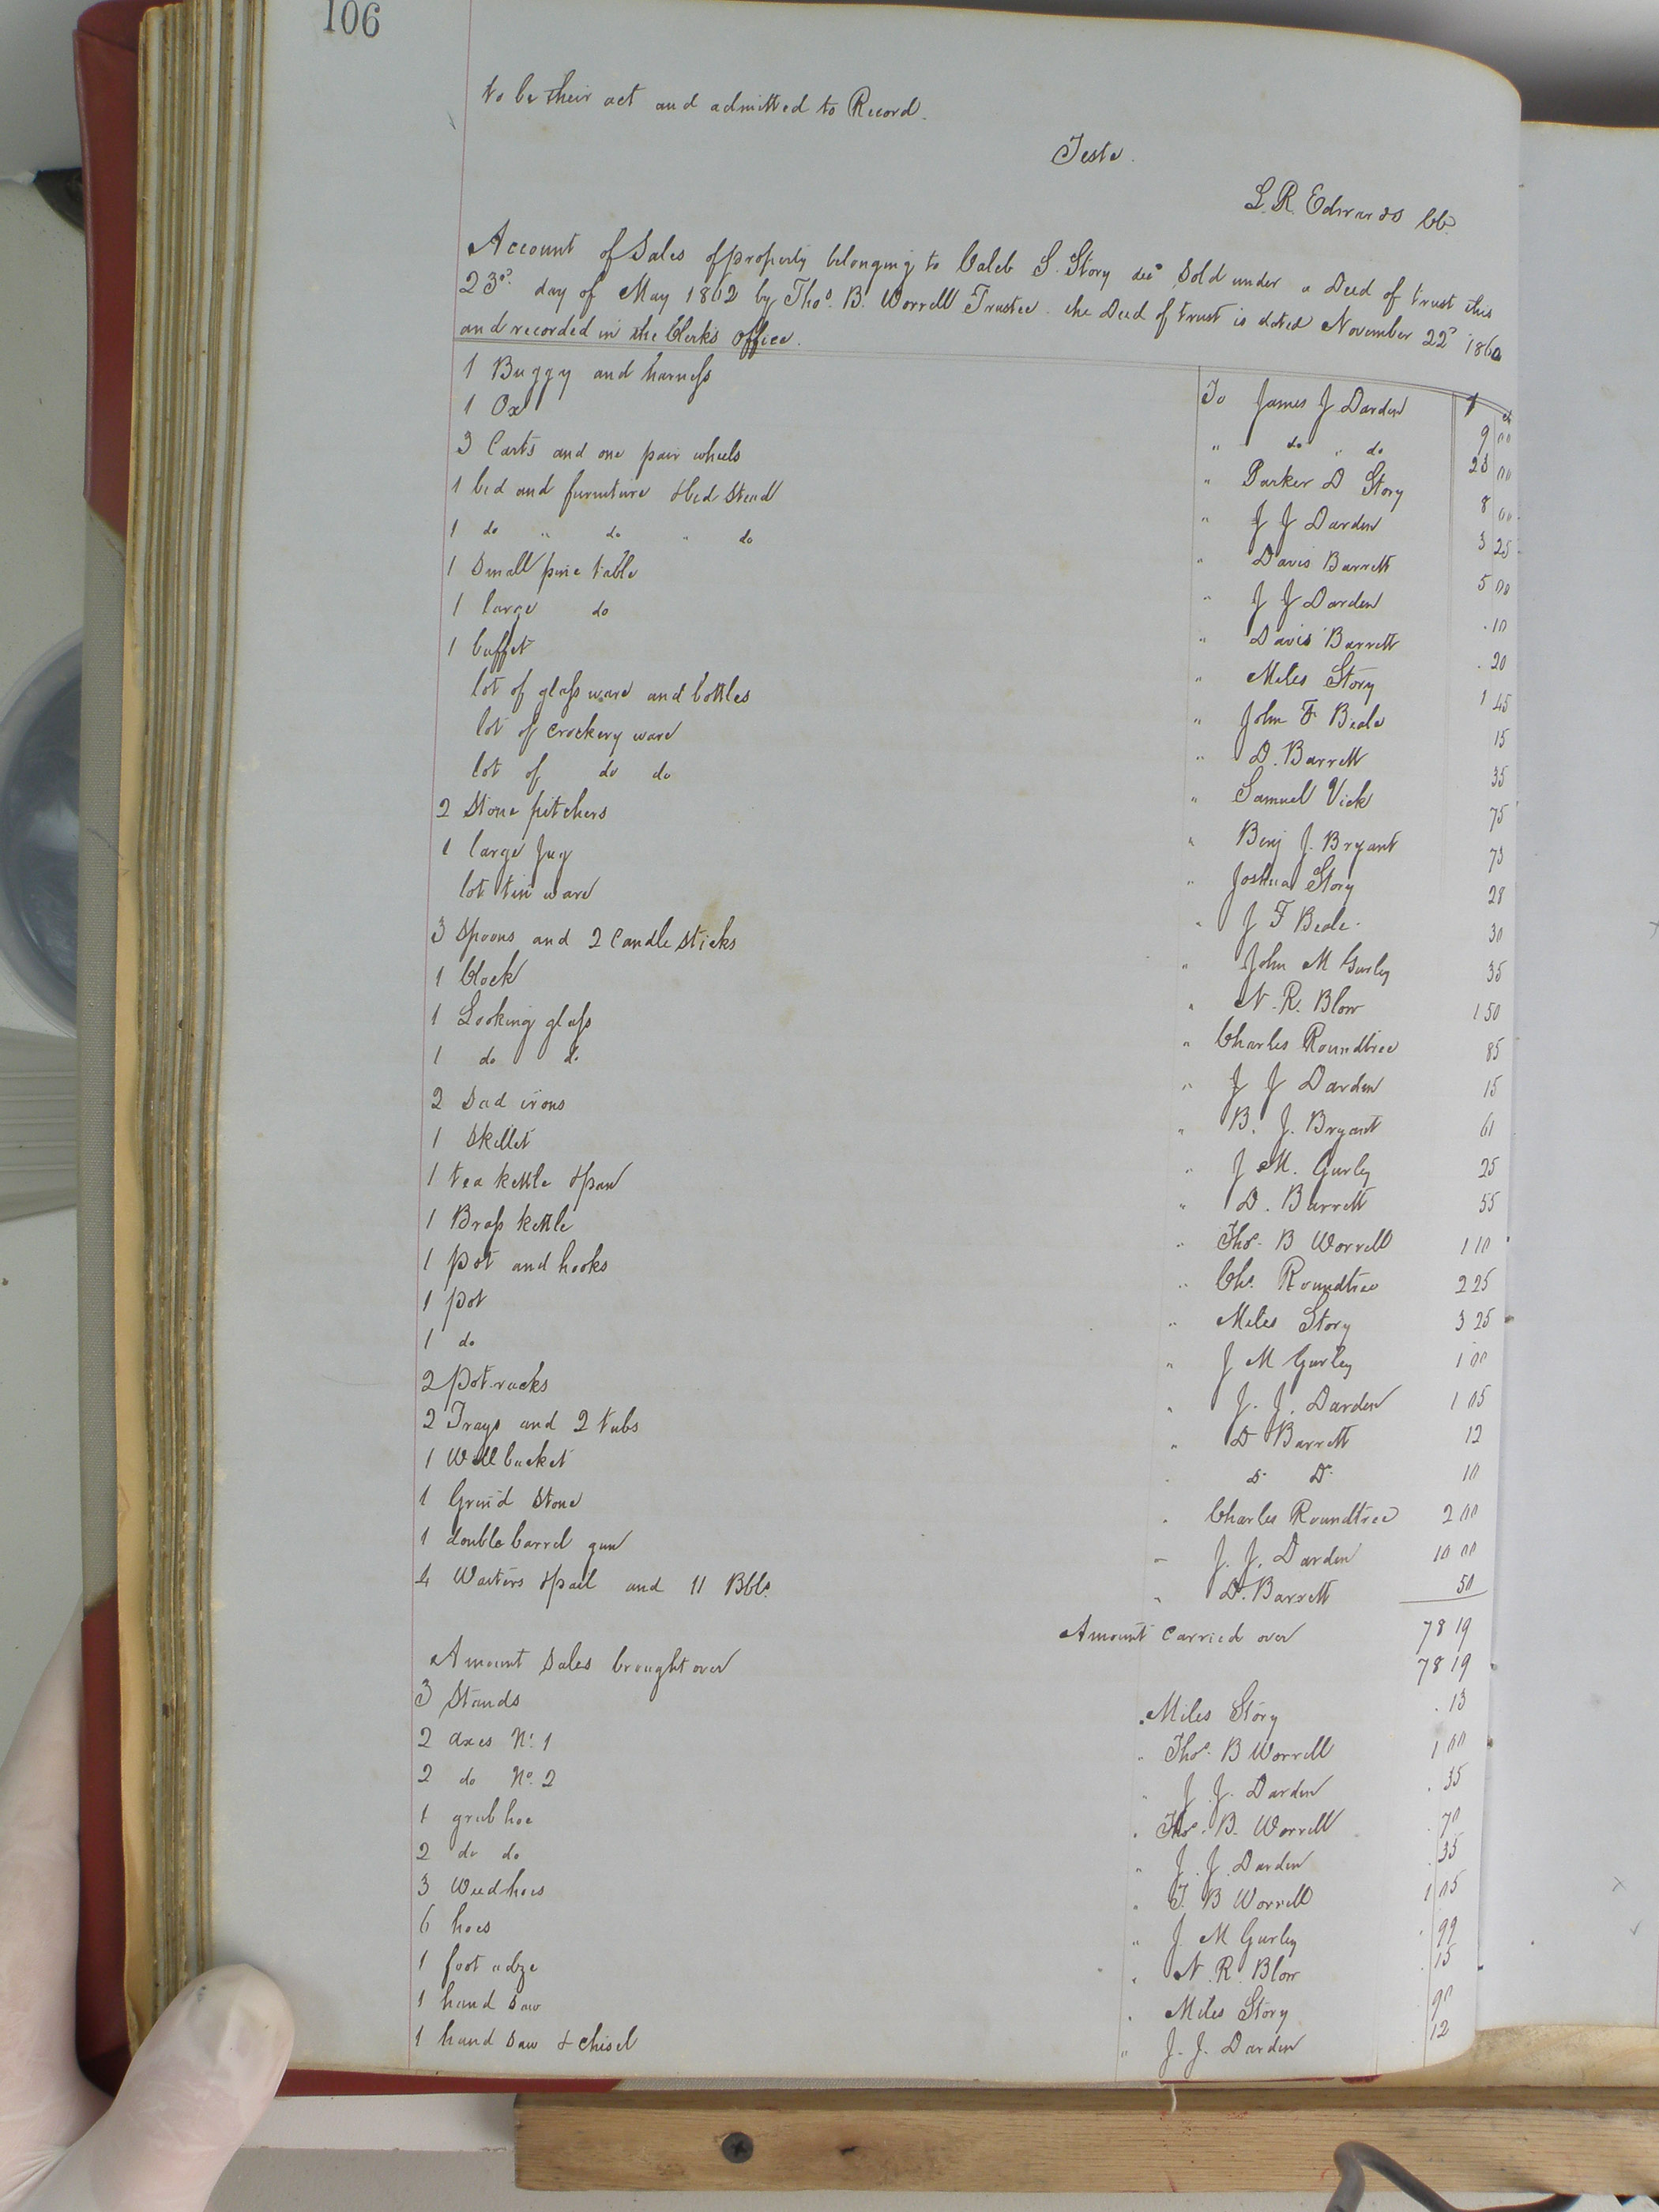 106
to be their act and admitted to Record.
Teste.
L. R. Edwards Clk.
Account of Sales of property belonging to Caleb S. Story decd Sold under a Deed of trust this
23d day of May 1862 by Thos. B. Worrell Trustee. the Deed of trust is dated November 22d 1860
and recorded in the Clerks office.
1 Buggy and harness To James J Darden $ 9 cts 00
1 Ox " do " do 23 00
3 Carts and one pair wheels " Parker D Story 8 00
1 bed and furniture & bed Stead " J J Darden 3 25
1 do " do " do " Davis Barrett 5 00
1 Small pine table " J J Darden .10
1 large do " Davis Barrett .20
1 buffet " Miles Story 1 45
lot of glass ware and bottles " John F Beale 15
lot of crockery ware " D. Barrett 35
lot of do do " Samuel Vick 75
2 Stone pitchers " Benj J. Bryant 73
1 large Jug " Joshua Story 28
lot tin ware " J F Beale 30
3 Spoons and 2 Candle Sticks " John M Gurley 35
1 Clock " N. R. Blow 1 50
1 Looking glass " Charles Roundtree 85
1 do do " J J Darden 15
2 Sad irons " B. J. Bryant 61
1 Skillet " J M. Gurley 25
1 tea kettle & pan " D. Barrett 55
1 Brass kettle " Thos. B Worrell 1 10
1 pot and hooks " Chs. Roundtree 2 25
1 pot " Miles Story 3 25
1 do " J M Gurley 1 00
2 pot-racks " J. J. Darden 1 05
2 Trays and 2 tubs " D Barrett 12
1 Well bucket " D. D. 10
1 Grind Stone " Charles Roundtree 2 00
1 double barrel gun " J. J. Darden 10 00
4 Waiters & pail and 11 Bbls. " D. Barrett 50
Amount carried over 78 19
Amount Sales brought over 78 19
3 Stands " Miles Story .13
2 axes No. 1 " Thos. B Worrell 1 00
2 do No. 2 " J. J. Darden .35
1 grub hoe " Thos. B. Worrell .70
2 do do " J. J. Darden .35
3 Weed hoes " T. B Worrell 1 05
6 hoes " J. M Gurley .99
1 foot adze " N. R. Blow .15
1 hand Saw " Miles Story 90
1 hand Saw & Chisel " J. J. Darden .12